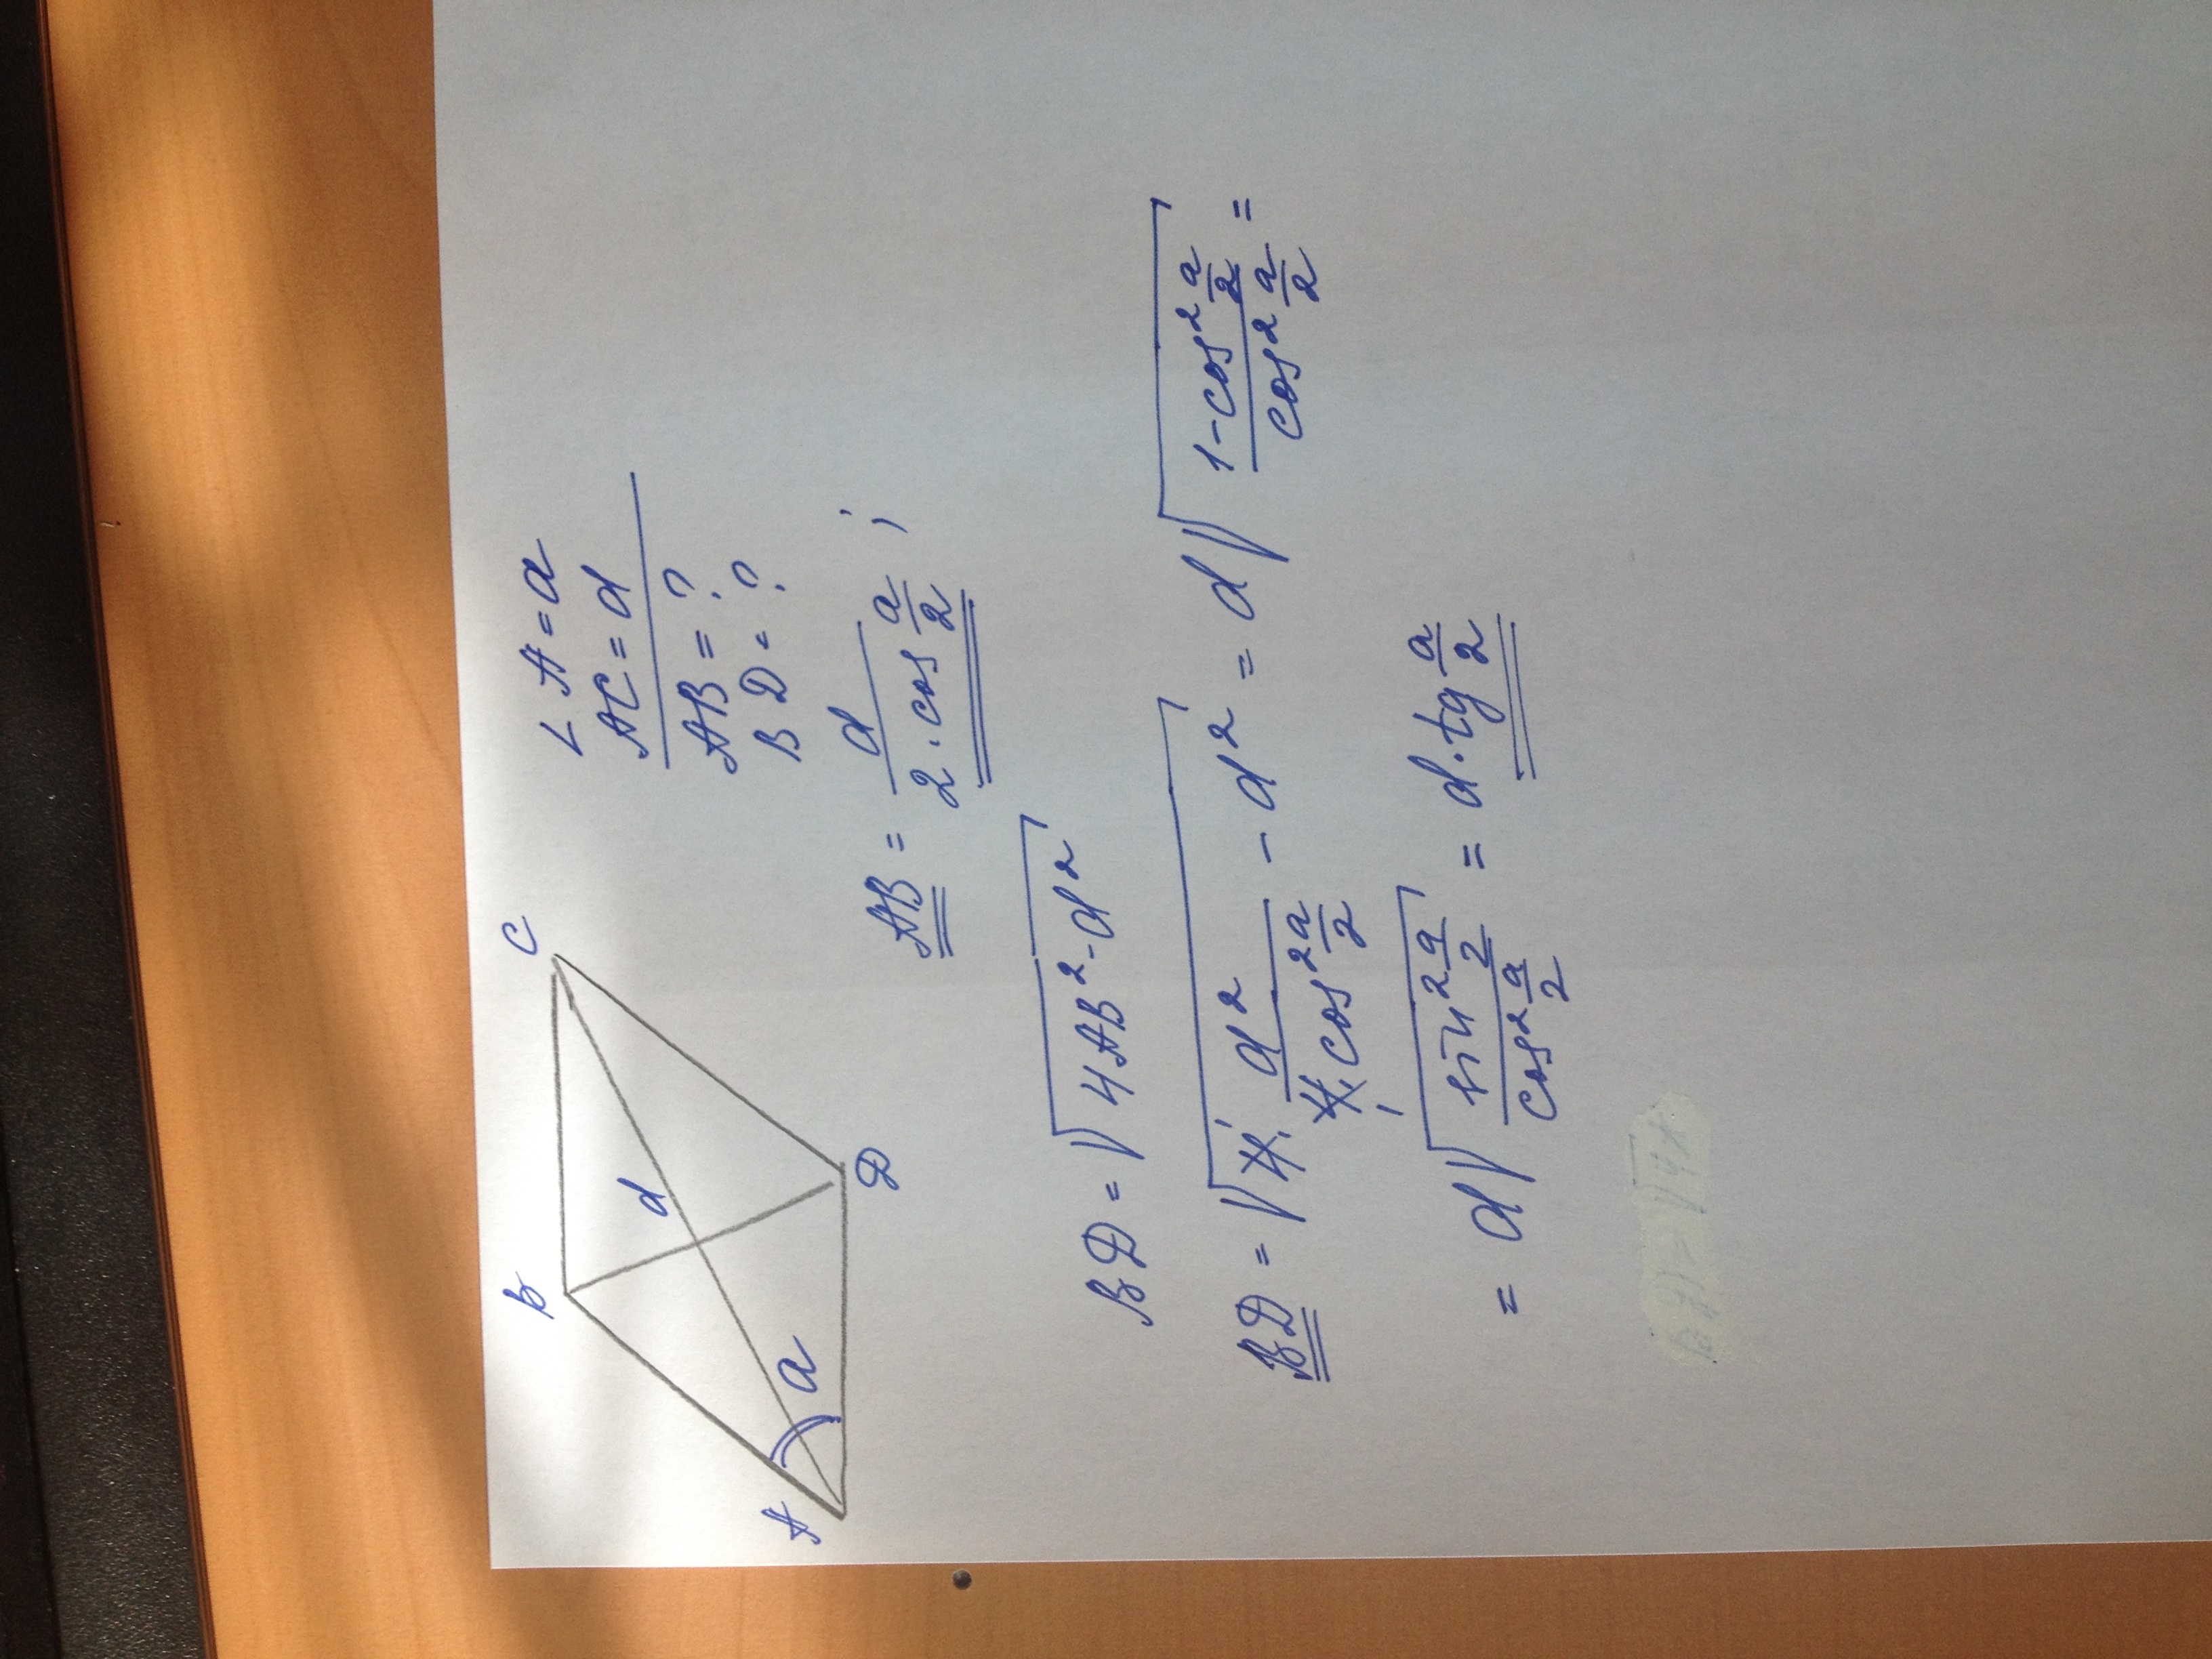 B C
d
A a D
∠A = a
AC = d
AB = ?
BD = ?
AB = d / (2 · cos a/2) ;
BD = √(4AB² - d²)
BD = √(4 · d² / (4 · cos² a/2) - d²) = d√((1 - cos² a/2) / (cos² a/2)) =
= d√((sin² a/2) / (cos² a/2)) = d · tg a/2